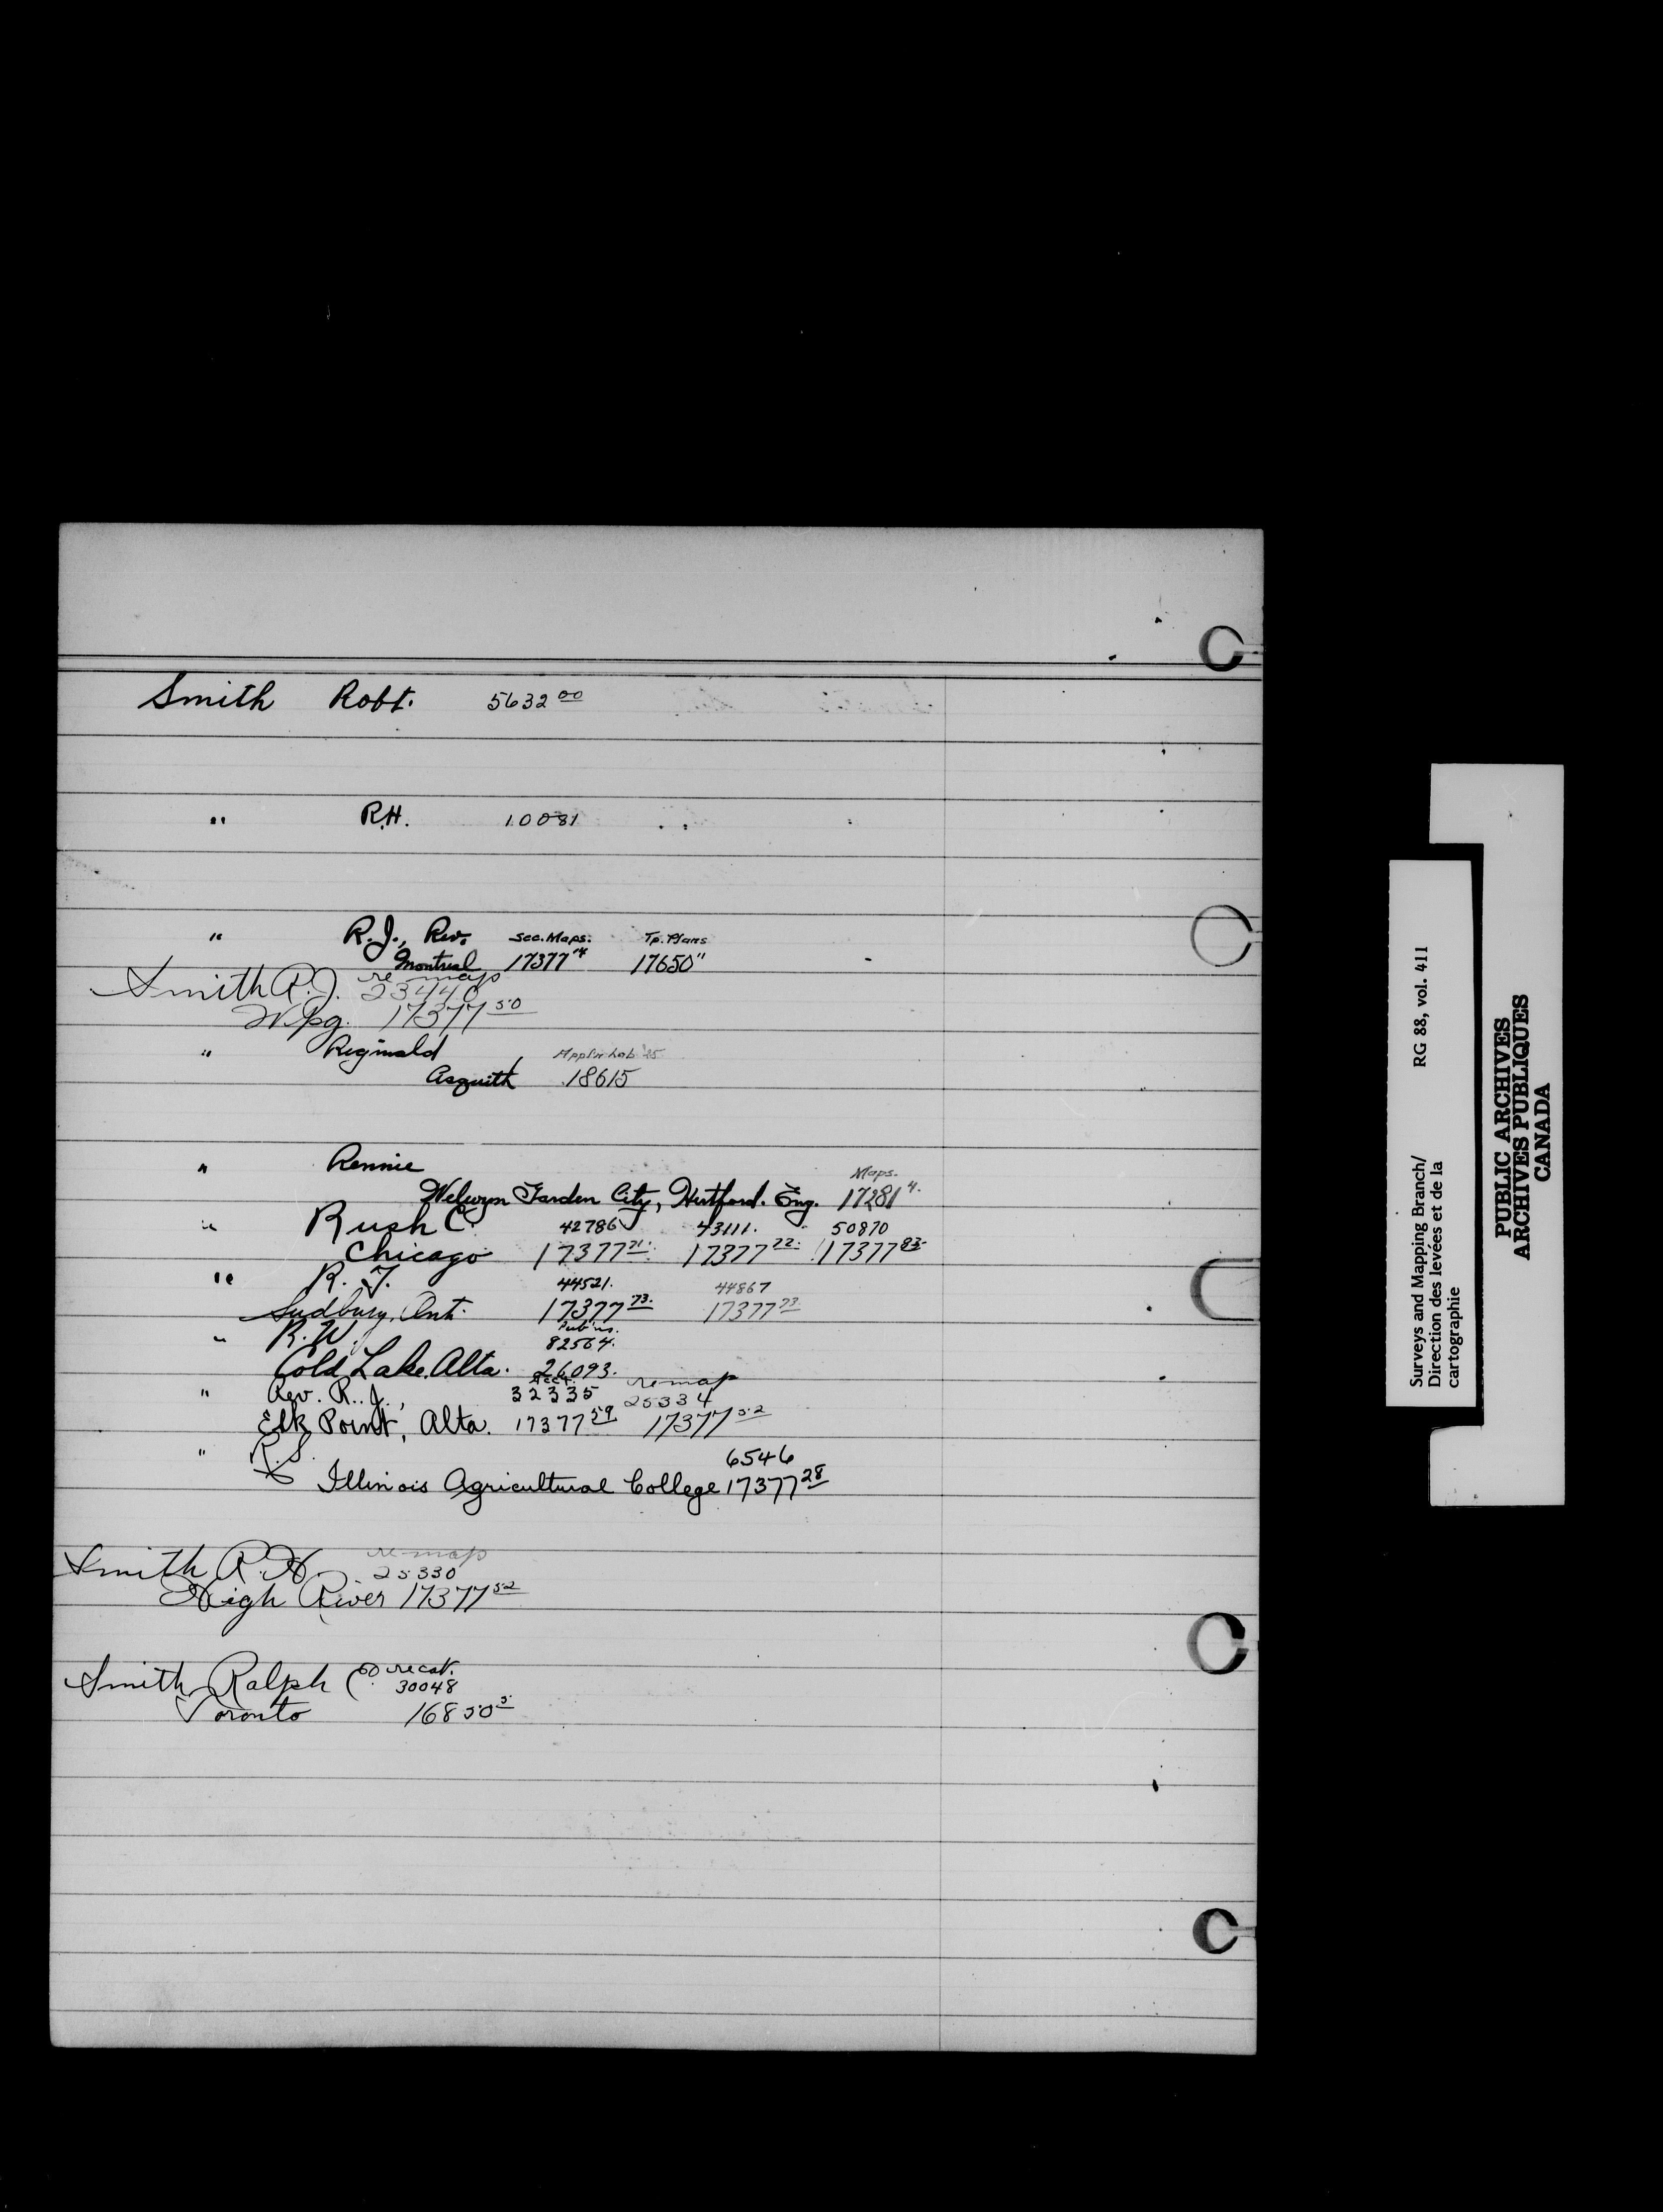 Smith Robt. 5632 00
" R.H. 10081
" R.J., Rev. Sec. Maps. Tp. Plans
Montreal 17377 14 17650 11
Smith R.J. re map 23440
Wpg. 17377 50
" Reginald
Asquith 18615
" Rennie Maps.
Welwyn Garden City, Hertford. Eng. 17281 4.
" Rush C. 42786 43111. 50870
Chicago 17377 71. 17377 72. 17377 83.
" R. T. 44521. 44867
Sudbury, Ont. 17377 73. 17377 73
" R.W. Pub'ns. 82564.
Cold Lake, Alta. 26093.
" Rev. R. J., Acct. 32335 re map 25334
Elk Point, Alta. 17377 59 17377 52
" R.S. 6546
Illinois Agricultural College 17377 28
Smith R.H. re map 25330
High River 17377 52
Smith Ralph C. re cat. 30048
Toronto 16850 5
Surveys and Mapping Branch/ RG 88, vol. 411
Direction des levées et de la
cartographie
PUBLIC ARCHIVES
ARCHIVES PUBLIQUES
CANADA